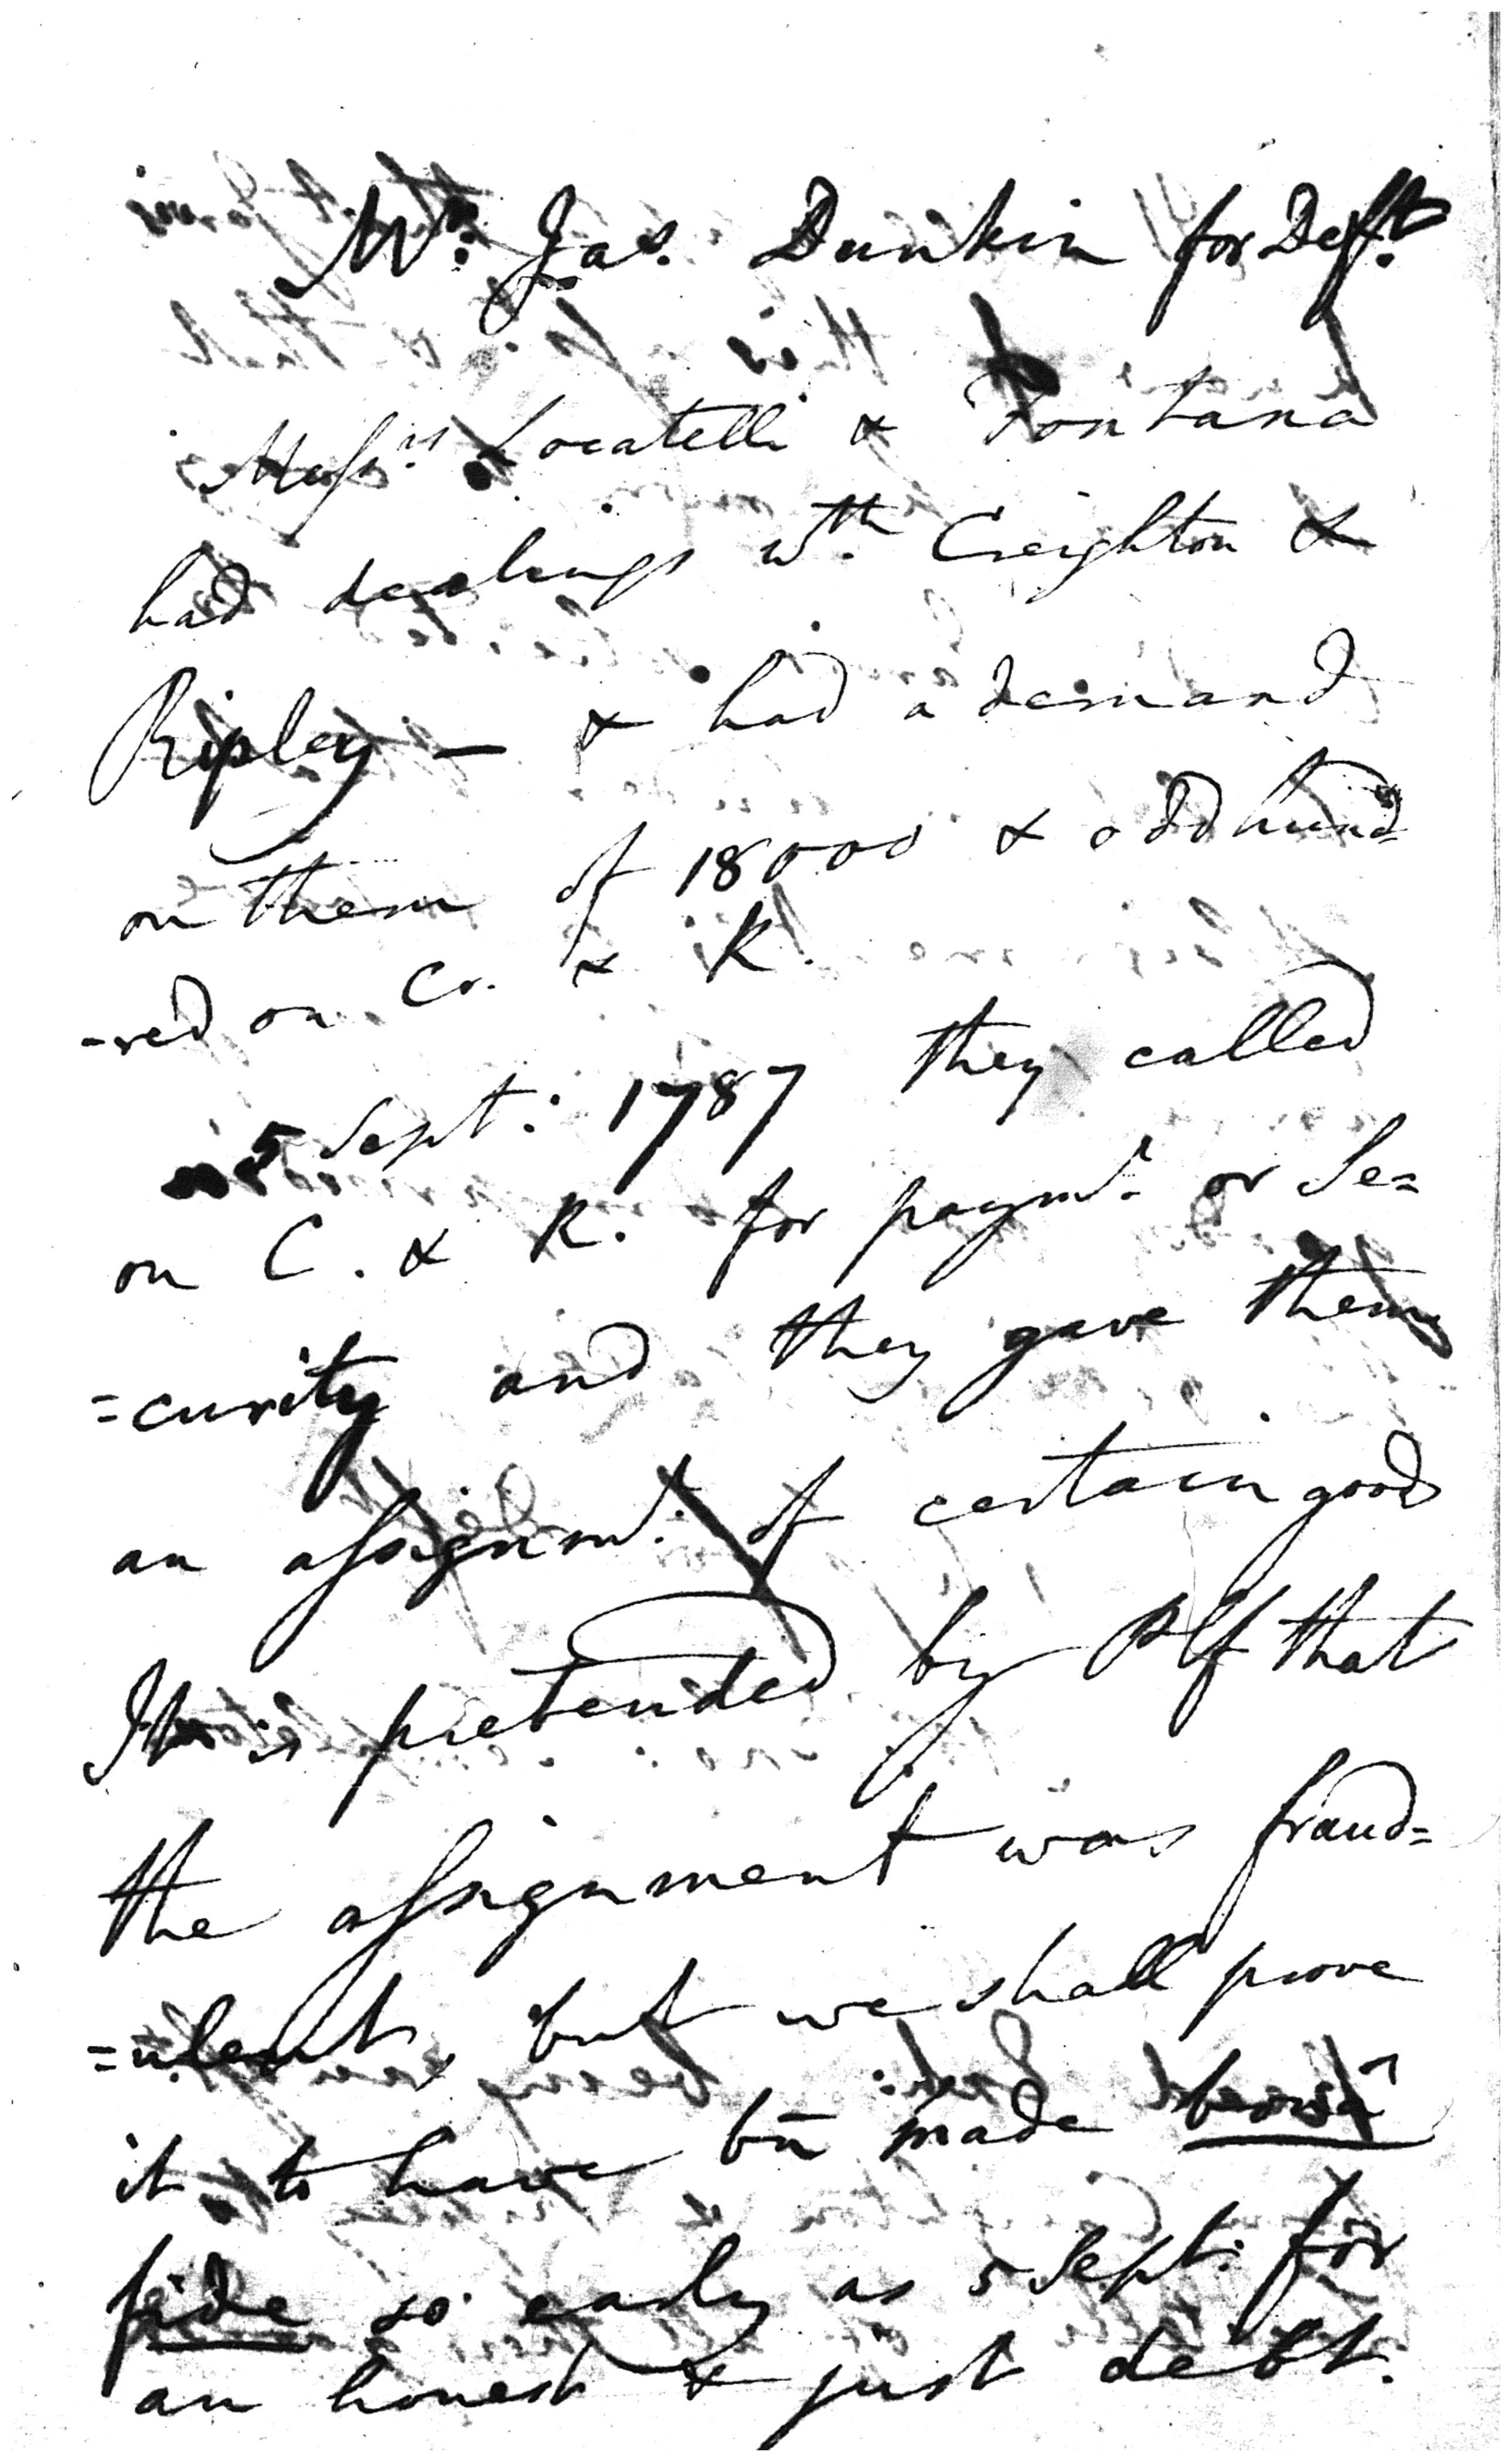 Mr. Jas. Dunkin for Deft.
Messrs Locatelli & Fontana
had dealings wth. Creighton &
Ripley — & had a demand
on them of 18000 & odd hund=
-red on Cr. & R.
5 Sept: 1787 they called
on C. & R. for paymt. or Se=
=curity and they gave them
an assignmt. of certain goods
It is pretended by Plf that
the assignment was fraud=
=ulent, but we shall prove
it to have bn made bona
fide so early as 5 Sept: for
an honest & just debt.